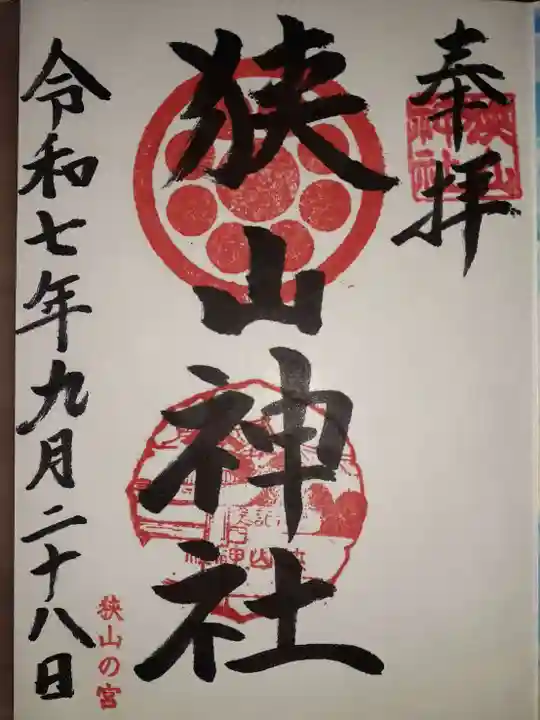 奉拝
狭山神社
狭山神社
令和七年九月二十八日
狭山の宮